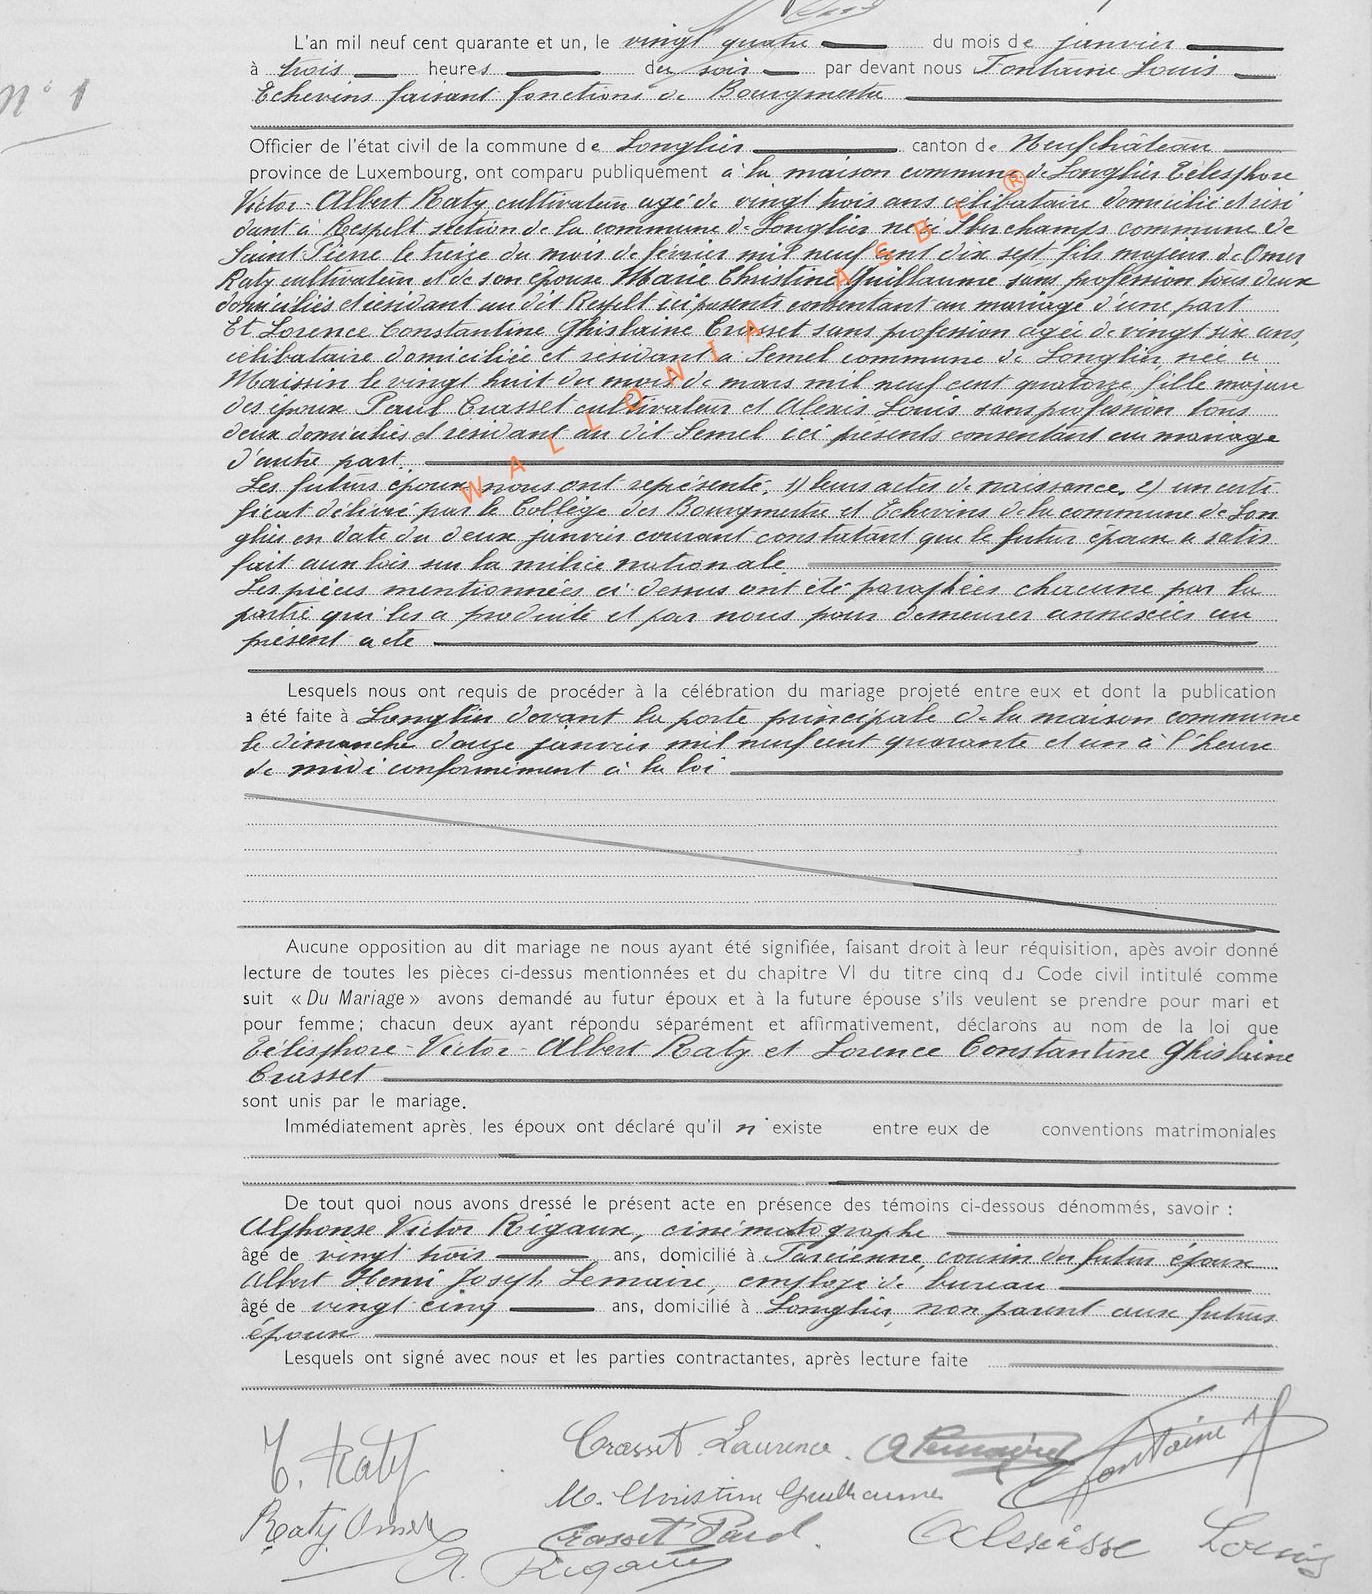 N° 1
L'an mil neuf cent quarante et un, le vingt quatre du mois de janvier
à trois heures du soir par devant nous Fontaine Louis
Echevins faisant fonctions de Bourgmestre
Officier de l'état civil de la commune de Longlier canton de Neufchâteau
province de Luxembourg, ont comparu publiquement à la maison commune de Longlier Télesphore
Victor-Albert Raty cultivateur agé de vingt trois ans célibataire domicilié et rési
dant à Respelt section de la commune de Longlier né à Sberchamps commune de
Saint Pierre le treize du mois de février mil neuf cent dix sept, fils majeur de Omer
Raty cultivateur et de son épouse Marie Christine Guillaume sans profession tous deux
domiciliés et résidant au dit Respelt ici présents consentant au mariage d'une part
Et Lorence Constantine Ghislaine Crasset sans profession agée de vingt six ans,
célibataire domiciliée et résidant à Semel commune de Longlier, née à
Maissin le vingt huit du mois de mars mil neuf cent quatorze, fille majeure
des époux Paul Crasset cultivateur et Alexis Louis sans profession tous
deux domiciliés et résidant au dit Semel ici présents consentant au mariage
d'autre part.
Les futurs époux nous ont représenté: 1) leurs actes de naissance, 2) un certi
ficat délivré par le Collège des Bourgmestre et Echevins de la commune de Lon
glier en date du deux janvier courant constatant que le futur époux a satis
fait aux lois sur la milice nationale.
Les pièces mentionnées ci-dessus ont été paraphées chacune par la
partie qui les a produite et par nous pour demeurer annexées au
présent acte
Lesquels nous ont requis de procéder à la célébration du mariage projeté entre eux et dont la publication
a été faite à Longlier devant la porte principale de la maison commune
le dimanche douze janvier mil neuf cent quarante et un à l'heure
de midi conformément à la loi
Aucune opposition au dit mariage ne nous ayant été signifiée, faisant droit à leur réquisition, apès avoir donné
lecture de toutes les pièces ci-dessus mentionnées et du chapitre VI du titre cinq du Code civil intitulé comme
suit « Du Mariage » avons demandé au futur époux et à la future épouse s'ils veulent se prendre pour mari et
pour femme; chacun deux ayant répondu séparément et affirmativement, déclarons au nom de la loi que
Télesphore-Victor-Albert Raty et Lorence Constantine Ghislaine
Crasset
sont unis par le mariage.
Immédiatement après, les époux ont déclaré qu'il n'existe entre eux de conventions matrimoniales
De tout quoi nous avons dressé le présent acte en présence des témoins ci-dessous dénommés, savoir :
Alphonse Victor Rigaux, cinématographe
âgé de vingt trois ans, domicilié à Tarcienne, cousin du futur époux
Albert Henri Joseph Lemaire, employé de bureau
âgé de vingt cinq ans, domicilié à Longlier, non parent aux futurs
époux
Lesquels ont signé avec nous et les parties contractantes, après lecture faite
T. Raty Crasset Laurence. A Lemaire Fontaine
M. Christine Guillaume
Raty Omer Crasset Paul. Alexisse Louis
A. Rigaux
WALLONIA ASBL ®